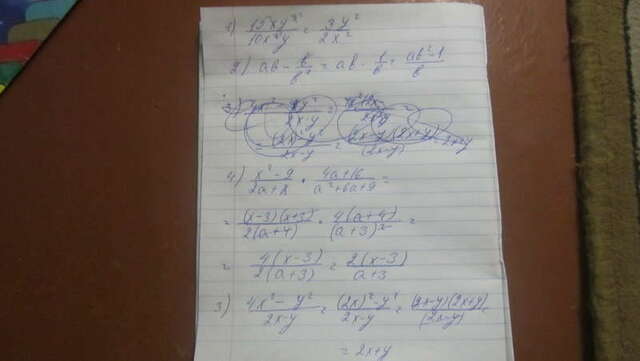 1) 15xy³/10x³y = 3y²/2x²
2) ab - b/b² = ab - 1/b = ab²-1/b
= (2x)²-y²/2x-y = (2x-y)(2x+y)/(2x-y) = 2x+y
4) x²-9/2a+8 · 4a+16/a²+6a+9 =
= (x-3)(x+3)/2(a+4) · 4(a+4)/(a+3)² =
= 4(x-3)/2(a+3) = 2(x-3)/a+3
3) 4x²-y²/2x-y = (2x)²-y²/2x-y = (2x-y)(2x+y)/(2x-y) =
= 2x+y